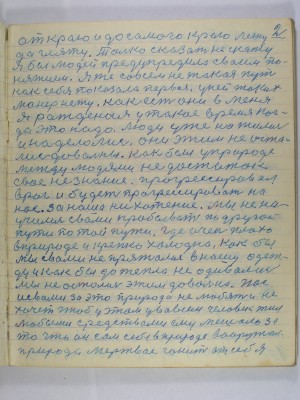 2
от краю и до самого краю лечу
да гляжу. Только сказать не скажу
Я бы людей предупредила своим по-
нятием. Я же совсем не такая пут
как себя показала первая. у ней таких
манер нету. как есть они в меня
Я рождения у такое время ког-
да это надо. Люди уже нажили
и наделались. они этим не оста-
лись довольны. Как был у природе
между людьми недостаток
свое не знание. прогрессировал
враг и будет прогрессировать на
нас. За наше нехотение. Мы не на-
учились с вами пробывать по другой
пути по той пути, где очен плохо
в природе и крепко холодно. Как бы
мы с вами не прятались в нашу одеж-
ду и как бы до тепла не одевались
мы не остались этим довольно. Нас
с вами за это природа не любит и не
хочет чтоб у этом у во всем человек жил
любыми средствами ему мешало за
то что он сам себе в природе
природа мертвое гонит от себя